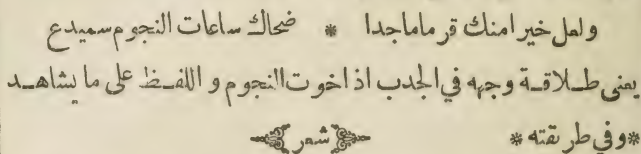 ولعل خيرا منك قرماماجدا * ضحاك ساعات النجوم سميدع
يعنى طلاقة وجهه في الجدب اذ اخوت النجوم و اللفظ على ما يشاهد
*وفي طريقته * شعر